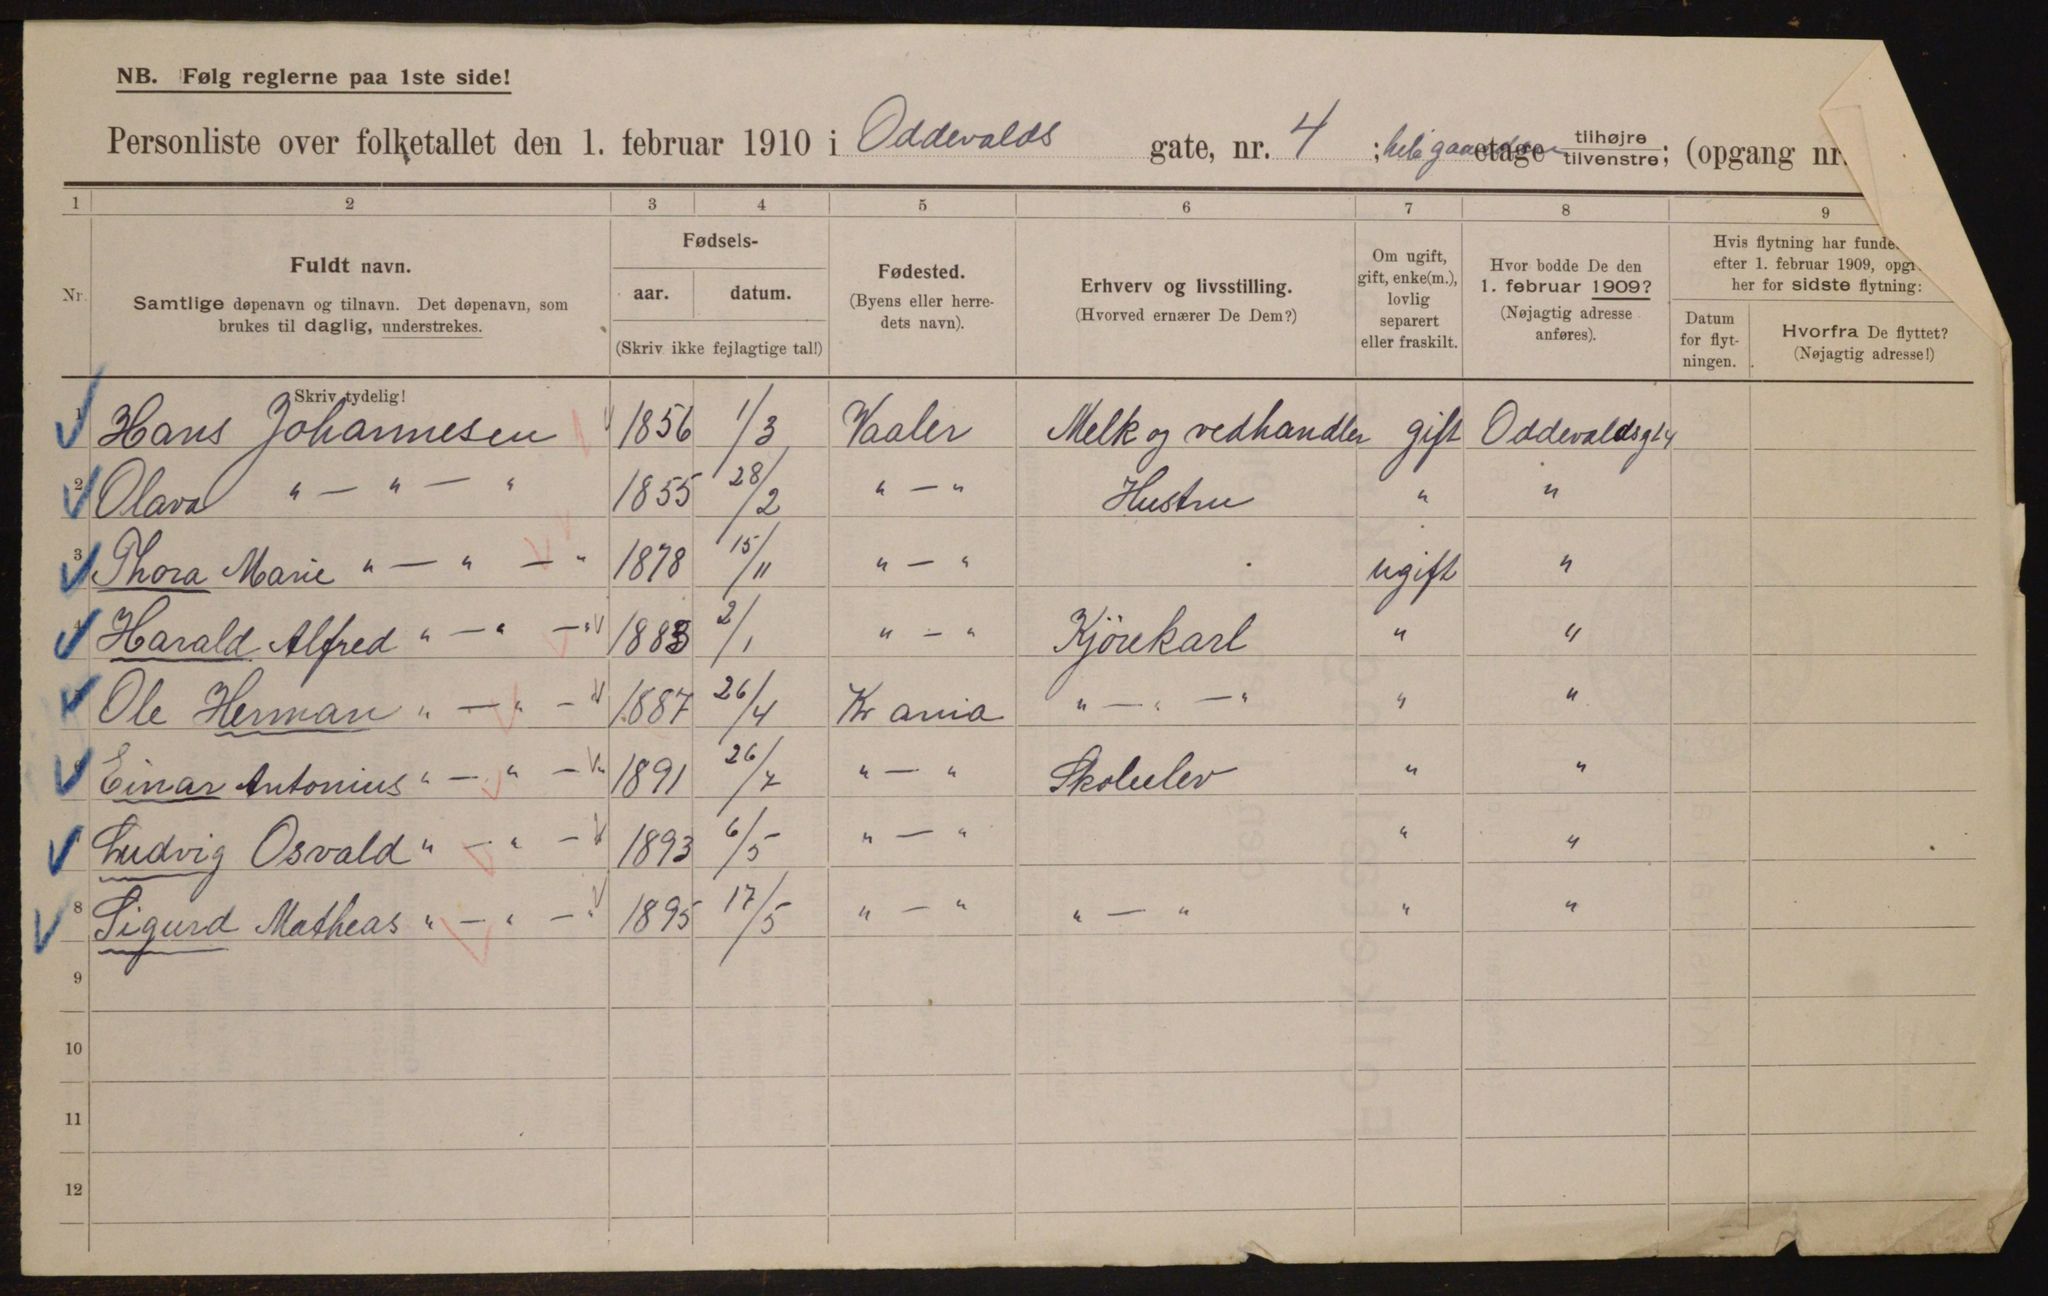 NB. Følg reglerne paa 1ste side!
Personliste over folketallet den 1. februar 1910 i Oddevalds gate, nr. 4 ; hele etage tilhøjre tilvenstre; (opgang nr.
1 2 3 4 5 6 7 8 9
Nr.
Fuldt navn.
Samtlige døpenavn og tilnavn. Det døpenavn, som
brukes til daglig, understrekes.
Fødsels-
aar. datum.
(Skriv ikke fejlagtige tal!)
Fødested.
(Byens eller herre-
dets navn).
Erhverv og livsstilling.
(Hvorved ernærer De Dem?)
Om ugift,
gift, enke(m.),
lovlig
separert
eller fraskilt.
Hvor bodde De den
1. februar 1909?
(Nøjagtig adresse
anføres).
Hvis flytning har funde
efter 1. februar 1909, opgi
her for sidste flytning:
Datum
for flyt-
ningen.
Hvorfra De flyttet?
(Nøjagtig adresse!)
Skriv tydelig!
1 Hans Johannesen 1856 1/3 Vaaler Melk og vedhandler gift Oddevaldsgt 4
2 Olava " — " — " 1855 28/2 " — " Hustru " "
3 Thora Marie " — " — " 1878 15/11 " — " ugift "
4 Harald Alfred " — " — " 1883 2/1 " — " Kjörekarl " "
5 Ole Herman " — " — " 1887 26/4 Kr ania " — " — " " "
6 Einar Antonius " — " — " 1891 26/7 " — " Skoleelev " "
Ludvig Osvald " — " — " 1893 6/5 " — " " "
8 Sigurd Matheas " — " — " 1895 17/5 " — " " — " " "
9
10
11
12